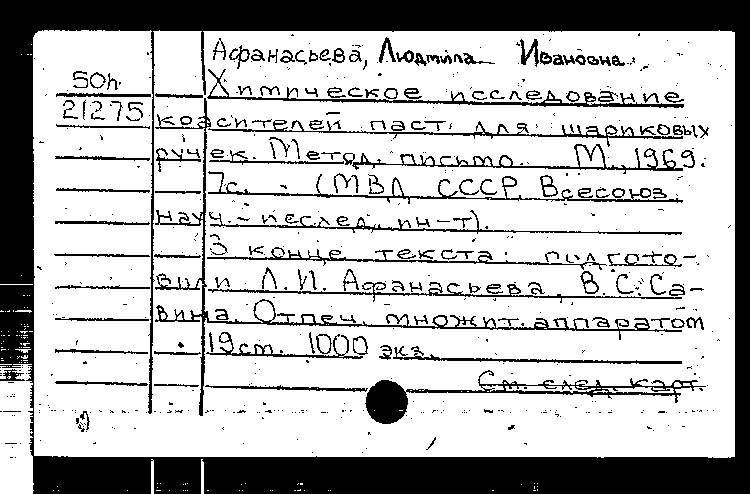 Афанасьева, Людмила Ивановна.
50h
Химическое исследование
21275
красителей паст для шариковых
ручек. Метод. письмо. М., 1969.
7с. - (МВД СССР. Всесоюз.
науч.-исслед. ин-т).
В конце текста: подгото-
вили Л.И. Афанасьева, В.С. Са-
вина. Отпеч. множит. аппаратом
19см. 1000 экз.
См. след. карт.